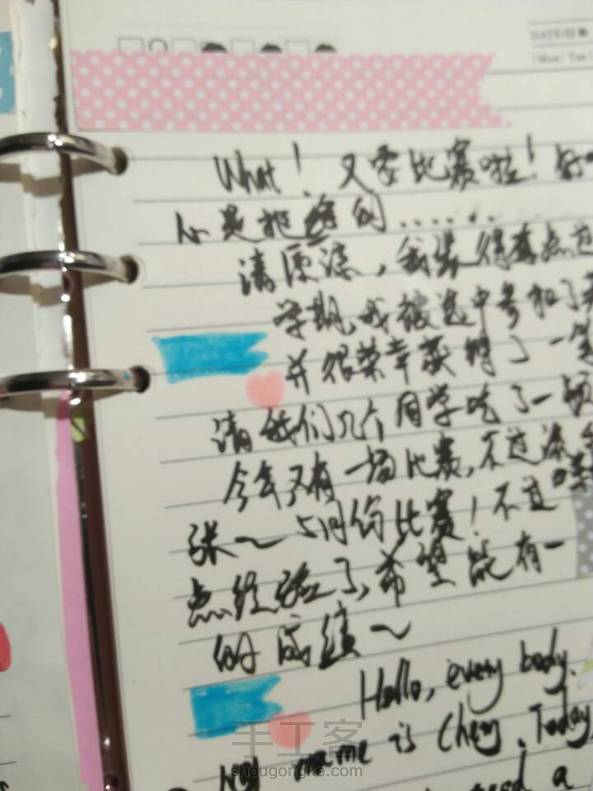 DATE/日期
What！又要比赛啦！好
心是拒绝的......
请原谅，我觉得有点
学期，我被选中参加了
并很荣幸获得了一等
请我们几个同学吃了一顿
今年又有一场比赛，不过
张～5月份比赛！不过
点经验了，希望能有一
的成绩～
Hello, every body.
name is Cheng. Today
need a
手工客
shougongke.com